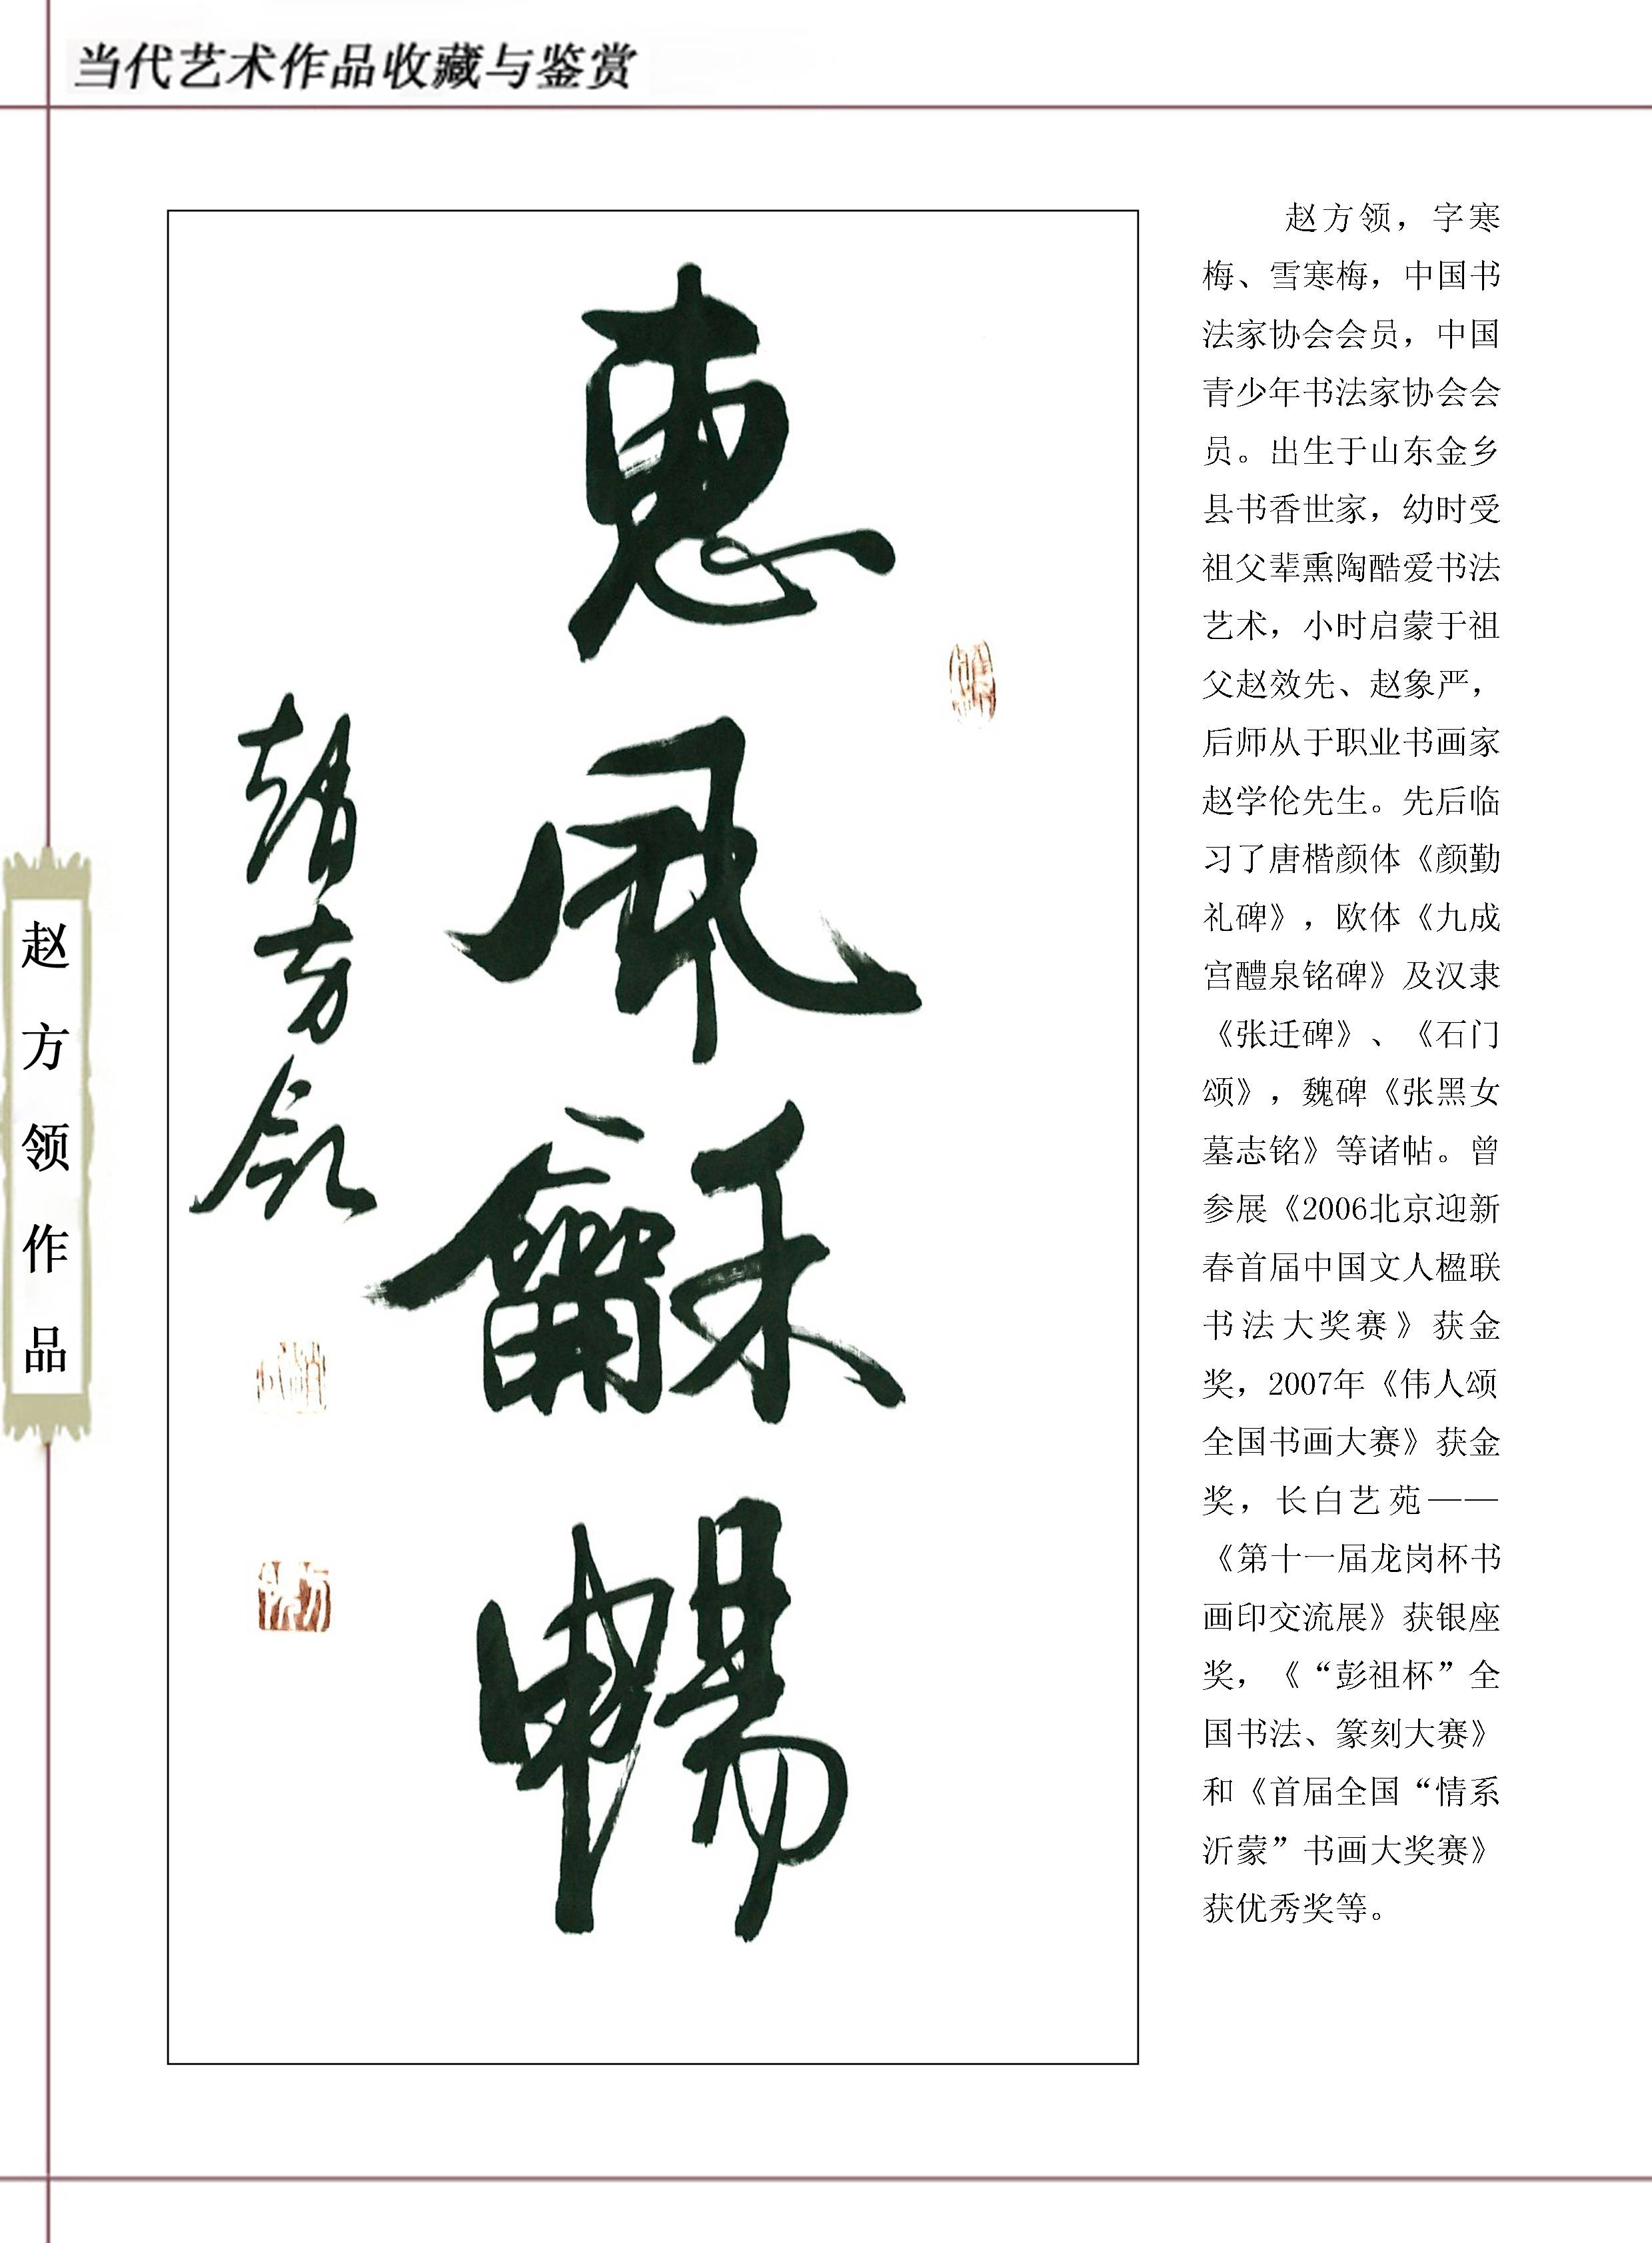 当代艺术作品收藏与鉴赏
惠风龢畅
赵方领
赵方领作品
赵方领，字寒
梅、雪寒梅，中国书
法家协会会员，中国
青少年书法家协会会
员。出生于山东金乡
县书香世家，幼时受
祖父辈熏陶酷爱书法
艺术，小时启蒙于祖
父赵效先、赵象严，
后师从于职业书画家
赵学伦先生。先后临
习了唐楷颜体《颜勤
礼碑》，欧体《九成
宫醴泉铭碑》及汉隶
《张迁碑》、《石门
颂》，魏碑《张黑女
墓志铭》等诸帖。曾
参展《2006北京迎新
春首届中国文人楹联
书法大奖赛》获金
奖，2007年《伟人颂
全国书画大赛》获金
奖，长白艺苑——
《第十一届龙岗杯书
画印交流展》获银座
奖，《“彭祖杯”全
国书法、篆刻大赛》
和《首届全国“情系
沂蒙”书画大奖赛》
获优秀奖等。